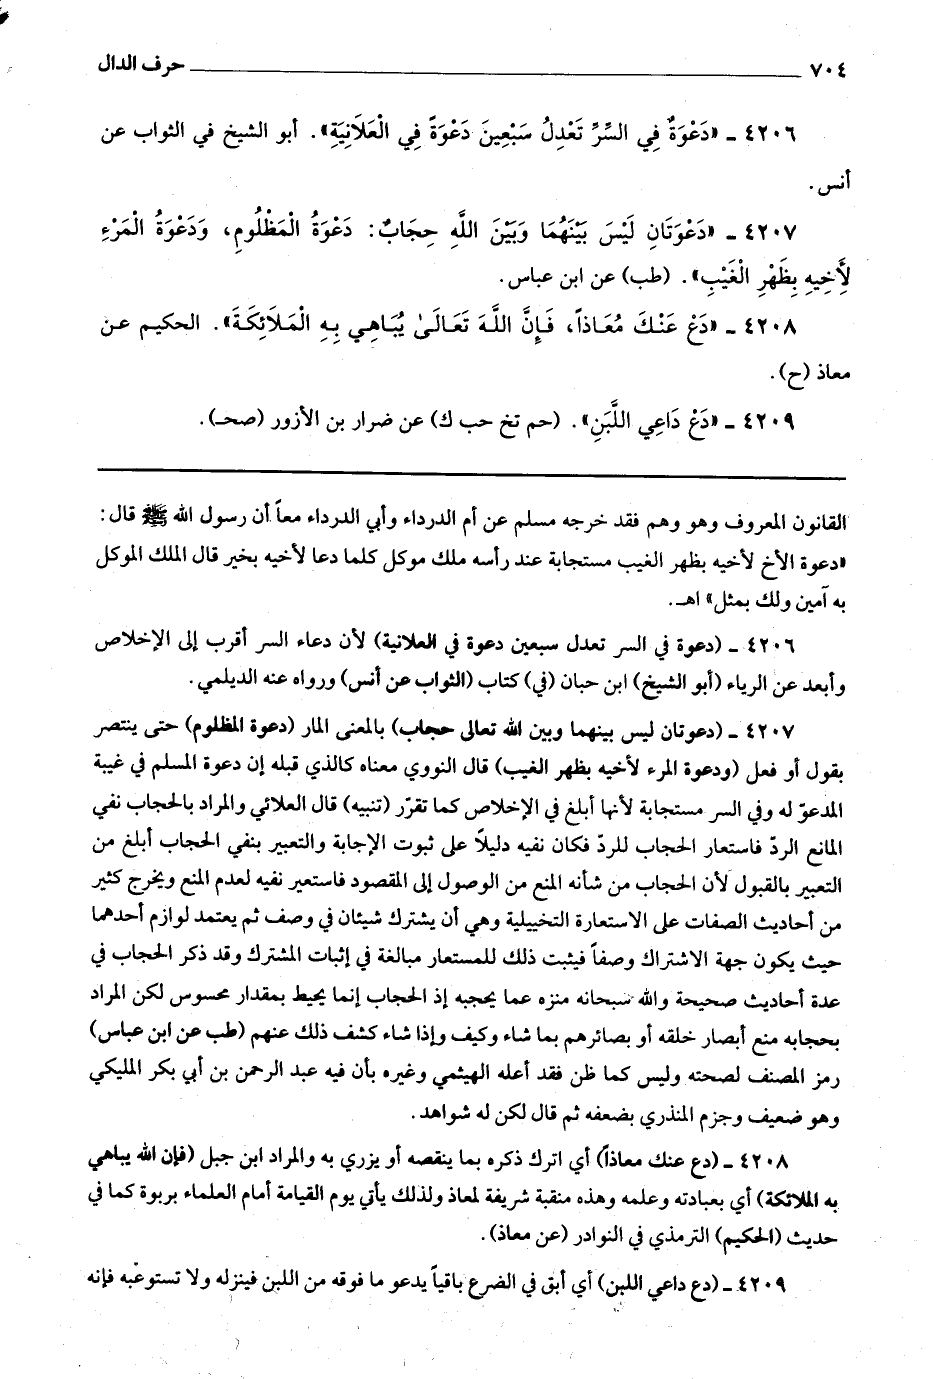 ٧٠٤ حرف الدال
٤٢٠٦ ـ «دَعْوَةٌ فِي السِّرِّ تَعْدِلُ سَبْعِينَ دَعْوَةً فِي الْعَلَانِيَةِ». أبو الشيخ في الثواب عن
أنس.
٤٢٠٧ ـ «دَعْوَتَانِ لَيْسَ بَيْنَهُمَا وَبَيْنَ اللَّهِ حِجَابٌ: دَعْوَةُ الْمَظْلُومِ، وَدَعْوَةُ الْمَرْءِ
لِأَخِيهِ بِظَهْرِ الْغَيْبِ». (طب) عن ابن عباس.
٤٢٠٨ ـ «دَعْ عَنْكَ مُعَاذاً، فَإِنَّ اللَّهَ تَعَالَىٰ يُبَاهِي بِهِ الْمَلَائِكَةَ». الحكيم عن
معاذ (ح).
٤٢٠٩ ـ «دَعْ دَاعِي اللَّبَنِ». (حم تخ حب ك) عن ضرار بن الأزور (صحـ).
القانون المعروف وهو وهم فقد خرجه مسلم عن أم الدرداء وأبي الدرداء معاً أن رسول الله ﷺ قال:
«دعوة الأخ لأخيه بظهر الغيب مستجابة عند رأسه ملك موكل كلما دعا لأخيه بخير قال الملك الموكل
به آمين ولك بمثل» اهـ.
٤٢٠٦ ـ (دعوة في السر تعدل سبعين دعوة في العلانية) لأن دعاء السر أقرب إلى الإخلاص
وأبعد عن الرياء (أبو الشيخ) ابن حبان (في) كتاب (الثواب عن أنس) ورواه عنه الديلمي.
٤٢٠٧ ـ (دعوتان ليس بينهما وبين الله تعالى حجاب) بالمعنى المار (دعوة المظلوم) حتى ينتصر
بقول أو فعل (ودعوة المرء لأخيه بظهر الغيب) قال النووي معناه كالذي قبله إن دعوة المسلم في غيبة
المدعوّ له وفي السر مستجابة لأنها أبلغ في الإخلاص كما تقرّر (تنبيه) قال العلائي والمراد بالحجاب نفي
المانع الردّ فاستعار الحجاب للردّ فكان نفيه دليلاً على ثبوت الإجابة والتعبير بنفي الحجاب أبلغ من
التعبير بالقبول لأن الحجاب من شأنه المنع من الوصول إلى المقصود فاستعير نفيه لعدم المنع ويخرج كثير
من أحاديث الصفات على الاستعارة التخييلية وهي أن يشترك شيئان في وصف ثم يعتمد لوازم أحدهما
حيث يكون جهة الاشتراك وصفاً فيثبت ذلك للمستعار مبالغة في إثبات المشترك وقد ذكر الحجاب في
عدة أحاديث صحيحة والله سبحانه منزه عما يحجبه إذ الحجاب إنما يحيط بمقدار محسوس لكن المراد
بحجابه منع أبصار خلقه أو بصائرهم بما شاء وكيف وإذا شاء كشف ذلك عنهم (طب عن ابن عباس)
رمز المصنف لصحته وليس كما ظن فقد أعله الهيثمي وغيره بأن فيه عبد الرحمن بن أبي بكر المليكي
وهو ضعيف وجزم المنذري بضعفه ثم قال لكن له شواهد.
٤٢٠٨ ـ (دع عنك معاذاً) أي اترك ذكره بما ينقصه أو يزري به والمراد ابن جبل (فإن الله يباهي
به الملائكة) أي بعبادته وعلمه وهذه منقبة شريفة لمعاذ ولذلك يأتي يوم القيامة أمام العلماء بربوة كما في
حديث (الحكيم) الترمذي في النوادر (عن معاذ).
٤٢٠٩ ـ (دع داعي اللبن) أي أبق في الضرع باقياً يدعو ما فوقه من اللبن فينزله ولا تستوعبه فإنه